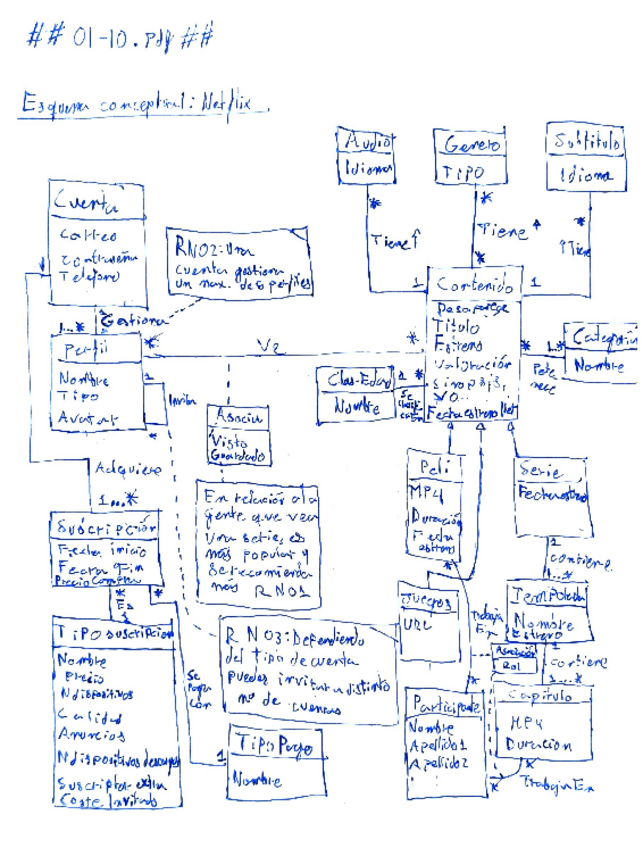 ## 01-10.pdf ##
Esquema conceptual: Netflix
Audio
Idioma
Genero
TIPO
Subtitulo
Idioma
Tiene
Tiene
Tiene
Cuenta
Correo
Contraseña
Telefono
RN02: Una
cuenta gestiona
un max. de 5 perfiles
1...*
Gestiona
Perfil
Nombre
Tipo
Avatar
Invita
Ve
Asocia
Visto
Guardado
Contenido
Titulo
Estreno
Valoración
sinopsis,
VO...
Fecha estreno
Categoria
Nombre
1..*
Pertenece
Clas-Edad
Nombre
Adquiere
1...*
Suscripción
Fecha inicio
Fecha fin
Precio compra
Es
TIPO suscripcion
Nombre
Precio
Ndispositivos
Calidad
Anuncios
Suscriptor extra
Coste Invitado
En relación a la
gente que vea
una serie, es
más popular y
se recomienda
más RN01
RN03: Dependiendo
del tipo de cuenta
puedes invitar a distinto
nº de cuentas
Se
paga
con
Tipo Pago
Nombre
Peli
MP4
Duración
Fecha
estreno
Serie
Fecha estreno
contiene
1...*
Juegos
URL
Temporada
Nombre
Estreno
Trabaja
En
Asociación
Rol
contiene
1...*
Participante
Nombre
Apellido1
Apellido2
Capitulo
MP4
Duracion
Trabaja En